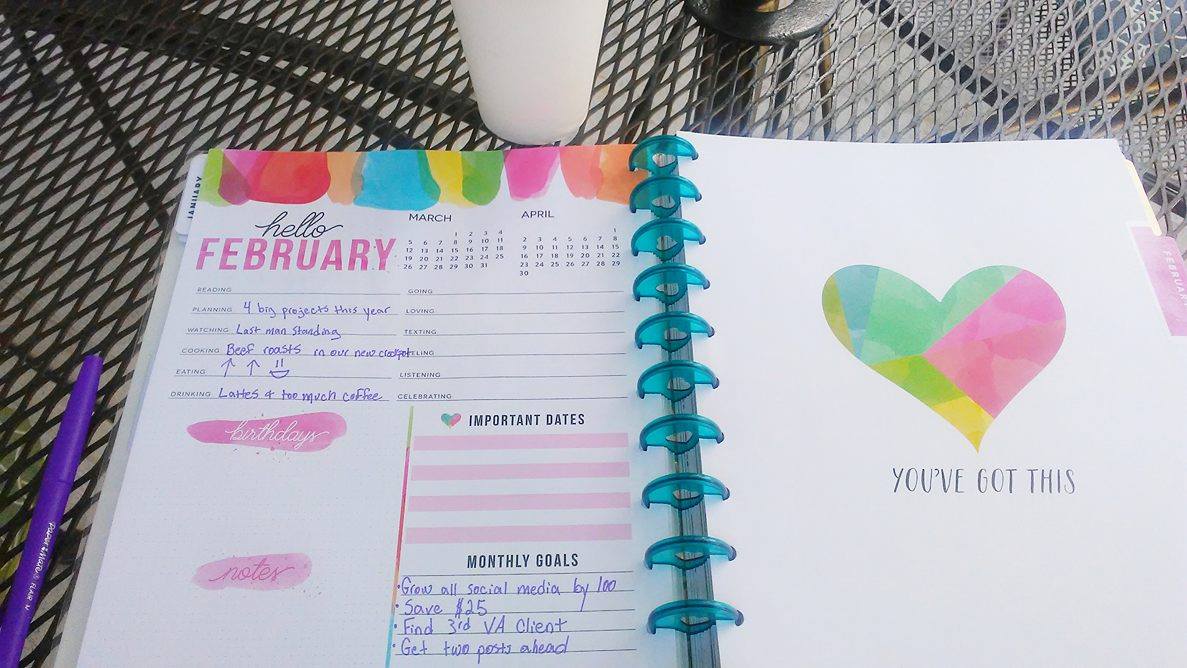 JANUARY
hello
FEBRUARY
MARCH
1 2 3 4
5 6 7 8 9 10 11
12 13 14 15 16 17 18
19 20 21 22 23 24 25
26 27 28 29 30 31
APRIL
1
2 3 4 5 6 7 8
9 10 11 12 13 14 15
16 17 18 19 20 21 22
23 24 25 26 27 28 29
30
READING
PLANNING 4 big projects this year
WATCHING Last man standing
COOKING Beef roasts in our new crockpot
EATING
DRINKING Lattes & too much coffee
GOING
LOVING
TEXTING
ELING
LISTENING
CELEBRATING
birthdays
notes
IMPORTANT DATES
MONTHLY GOALS
• Grow all social media by 100
• Save $25
• Find 3rd VA Client
• Get two posts ahead
YOU'VE GOT THIS
FEBRUARY
Paper Mate FLAIR M